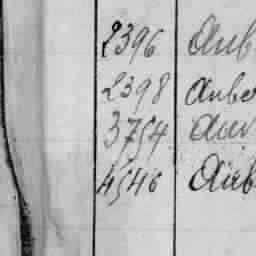 2396 Aub
2398 Aube
3754 Aub
4546 Aub